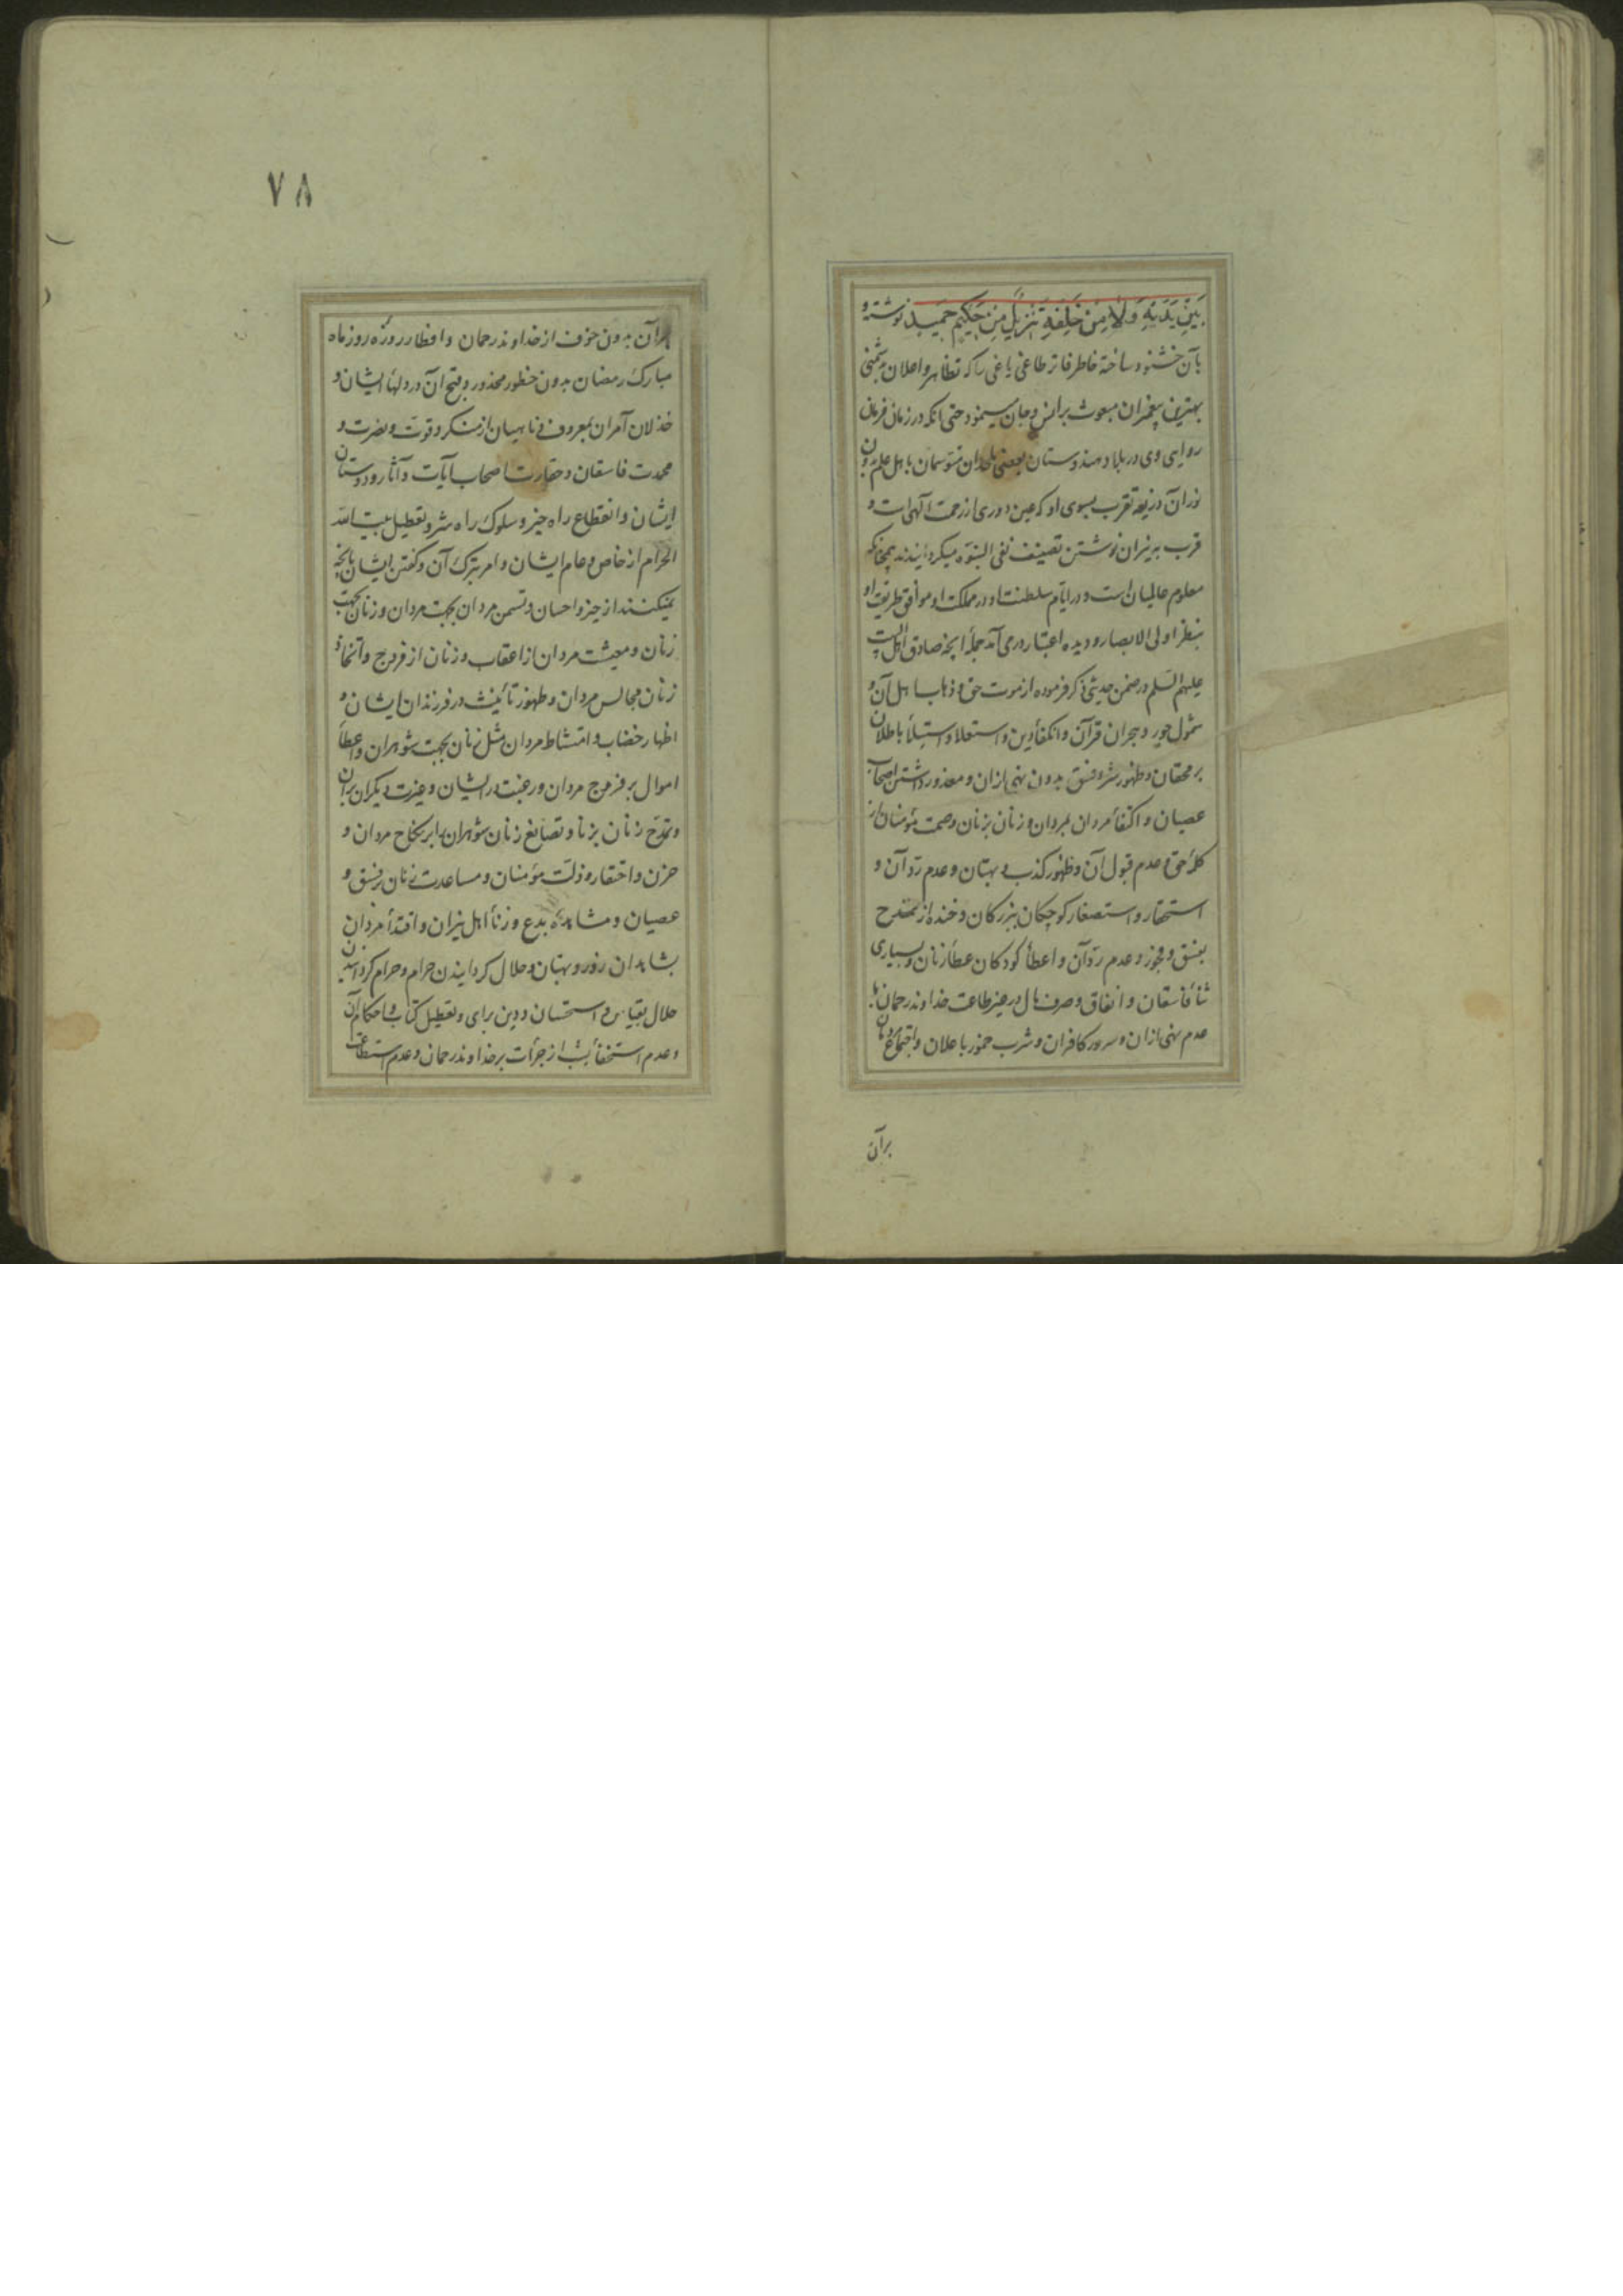 بَيْنِ يَدَيْهِ وَلَا مِنْ خَلْفِهِ تَنْزِيلٌ مِنْ حَكِيمٍ حَمِيدٍ نوشته و
بآن خشنود ساخته خاطر فاتر طاغی باغی را که تظاهر و اعلان بدشمنی
بهترین پیغمبران مبعوث بر انس و جان مینمود حتی انکه در زمان فرمان
روایی وی در بلاد هندوستان بعضی ملحدان متوسمان باهل علم بدون
نور آن ذریعه تقرب بسوی او که عین دوری از رحمت آلهی است و
قرب به نیران نوشتن تصنیف نفی النبوّه میگردانیدند همچنانکه
معلوم عالمیان است و در ایام سلطنت او در مملکت او موافق طریقت او
بنظر اولی الابصار و دیده اعتبار درمی آمد جملهٔ آنچه صادق اهل البیت
علیهم السلم در ضمن حدیثی ذکر فرموده از موت حق و ذهاب اهل آن و
شمول جور و هجران قرآن و انکفاء دین و استعلا و استیلاء باطلان
بر محقان و ظهور شر و فسق بدون نهی از ان و معذور داشتن اصحاب
عصیان و اکتفاء مردان بمردان و زنان بزنان و صمت مؤمنان از
کلمهٔ حق و عدم قبول آن و ظهور کذب و بهتان و عدم ردّ آن و
استحقار و استصغار کوچکان بزرکان و خنده از تمدح
بفسق و فجور و عدم ردّ آن و اعطاء کودکان عطاء زنان و بسیاری
ثناء فاسقان و انفاق و صرف مال در غیر طاعت خداوند رحمان با
عدم نهی از ان و سرور کافران و شرب خمور باعلان و اجتماع مردمان
بر آن
۷۸
بر آن بدون خوف از خداوند رحمان و افطار روزهٔ روز ماه
مبارک رمضان بدون خطور محذور و قبح آن در دلهاء ایشان و
خذلان آمران بمعروف و ناهیان از منکر و قوت و نصرت و
محمدت فاسقان و حقارت اصحاب آیات و آثار و دوستان
ایشان و انقطاع راه خیر و سلوک راه شر و تعطیل بیت الله
الحرام از خاص و عام ایشان و امر بترک آن و کفتن ایشان بانچه
نمیکنند از خیر و احسان و تسمن مردان بجهت مردان و زنان بجهت
زنان و معیشت مردان از اعقاب و زنان از فروج و اتخاذ
زنان مجالس مردان و ظهور تأنیث در فرزندان ایشان و
اظهار خضاب و امتشاط مردان مثل زنان بجهت شوهران و اعطاء
اموال بر فروج مردان و رغبت در ایشان و غیرت دیکران بر آن
و تمدّح زنان بزنا و تصانع زنان شوهران را بر نکاح مردان و
حزن و احتقار و ذلّت مؤمنان و مساعدت زنان بر فسق و
عصیان و مشاهدهٔ بدع و زناء اهل نیران و اقتداء مردان
بشاهدان زور و بهتان و حلال کردانیدن حرام و حرام کردانیدن
حلال بقیاس و استحسان و دین برای و تعطیل کتاب و احکام آن
و عدم استخفاء بشب از جرأت بر خداوند رحمان و عدم استطاعت